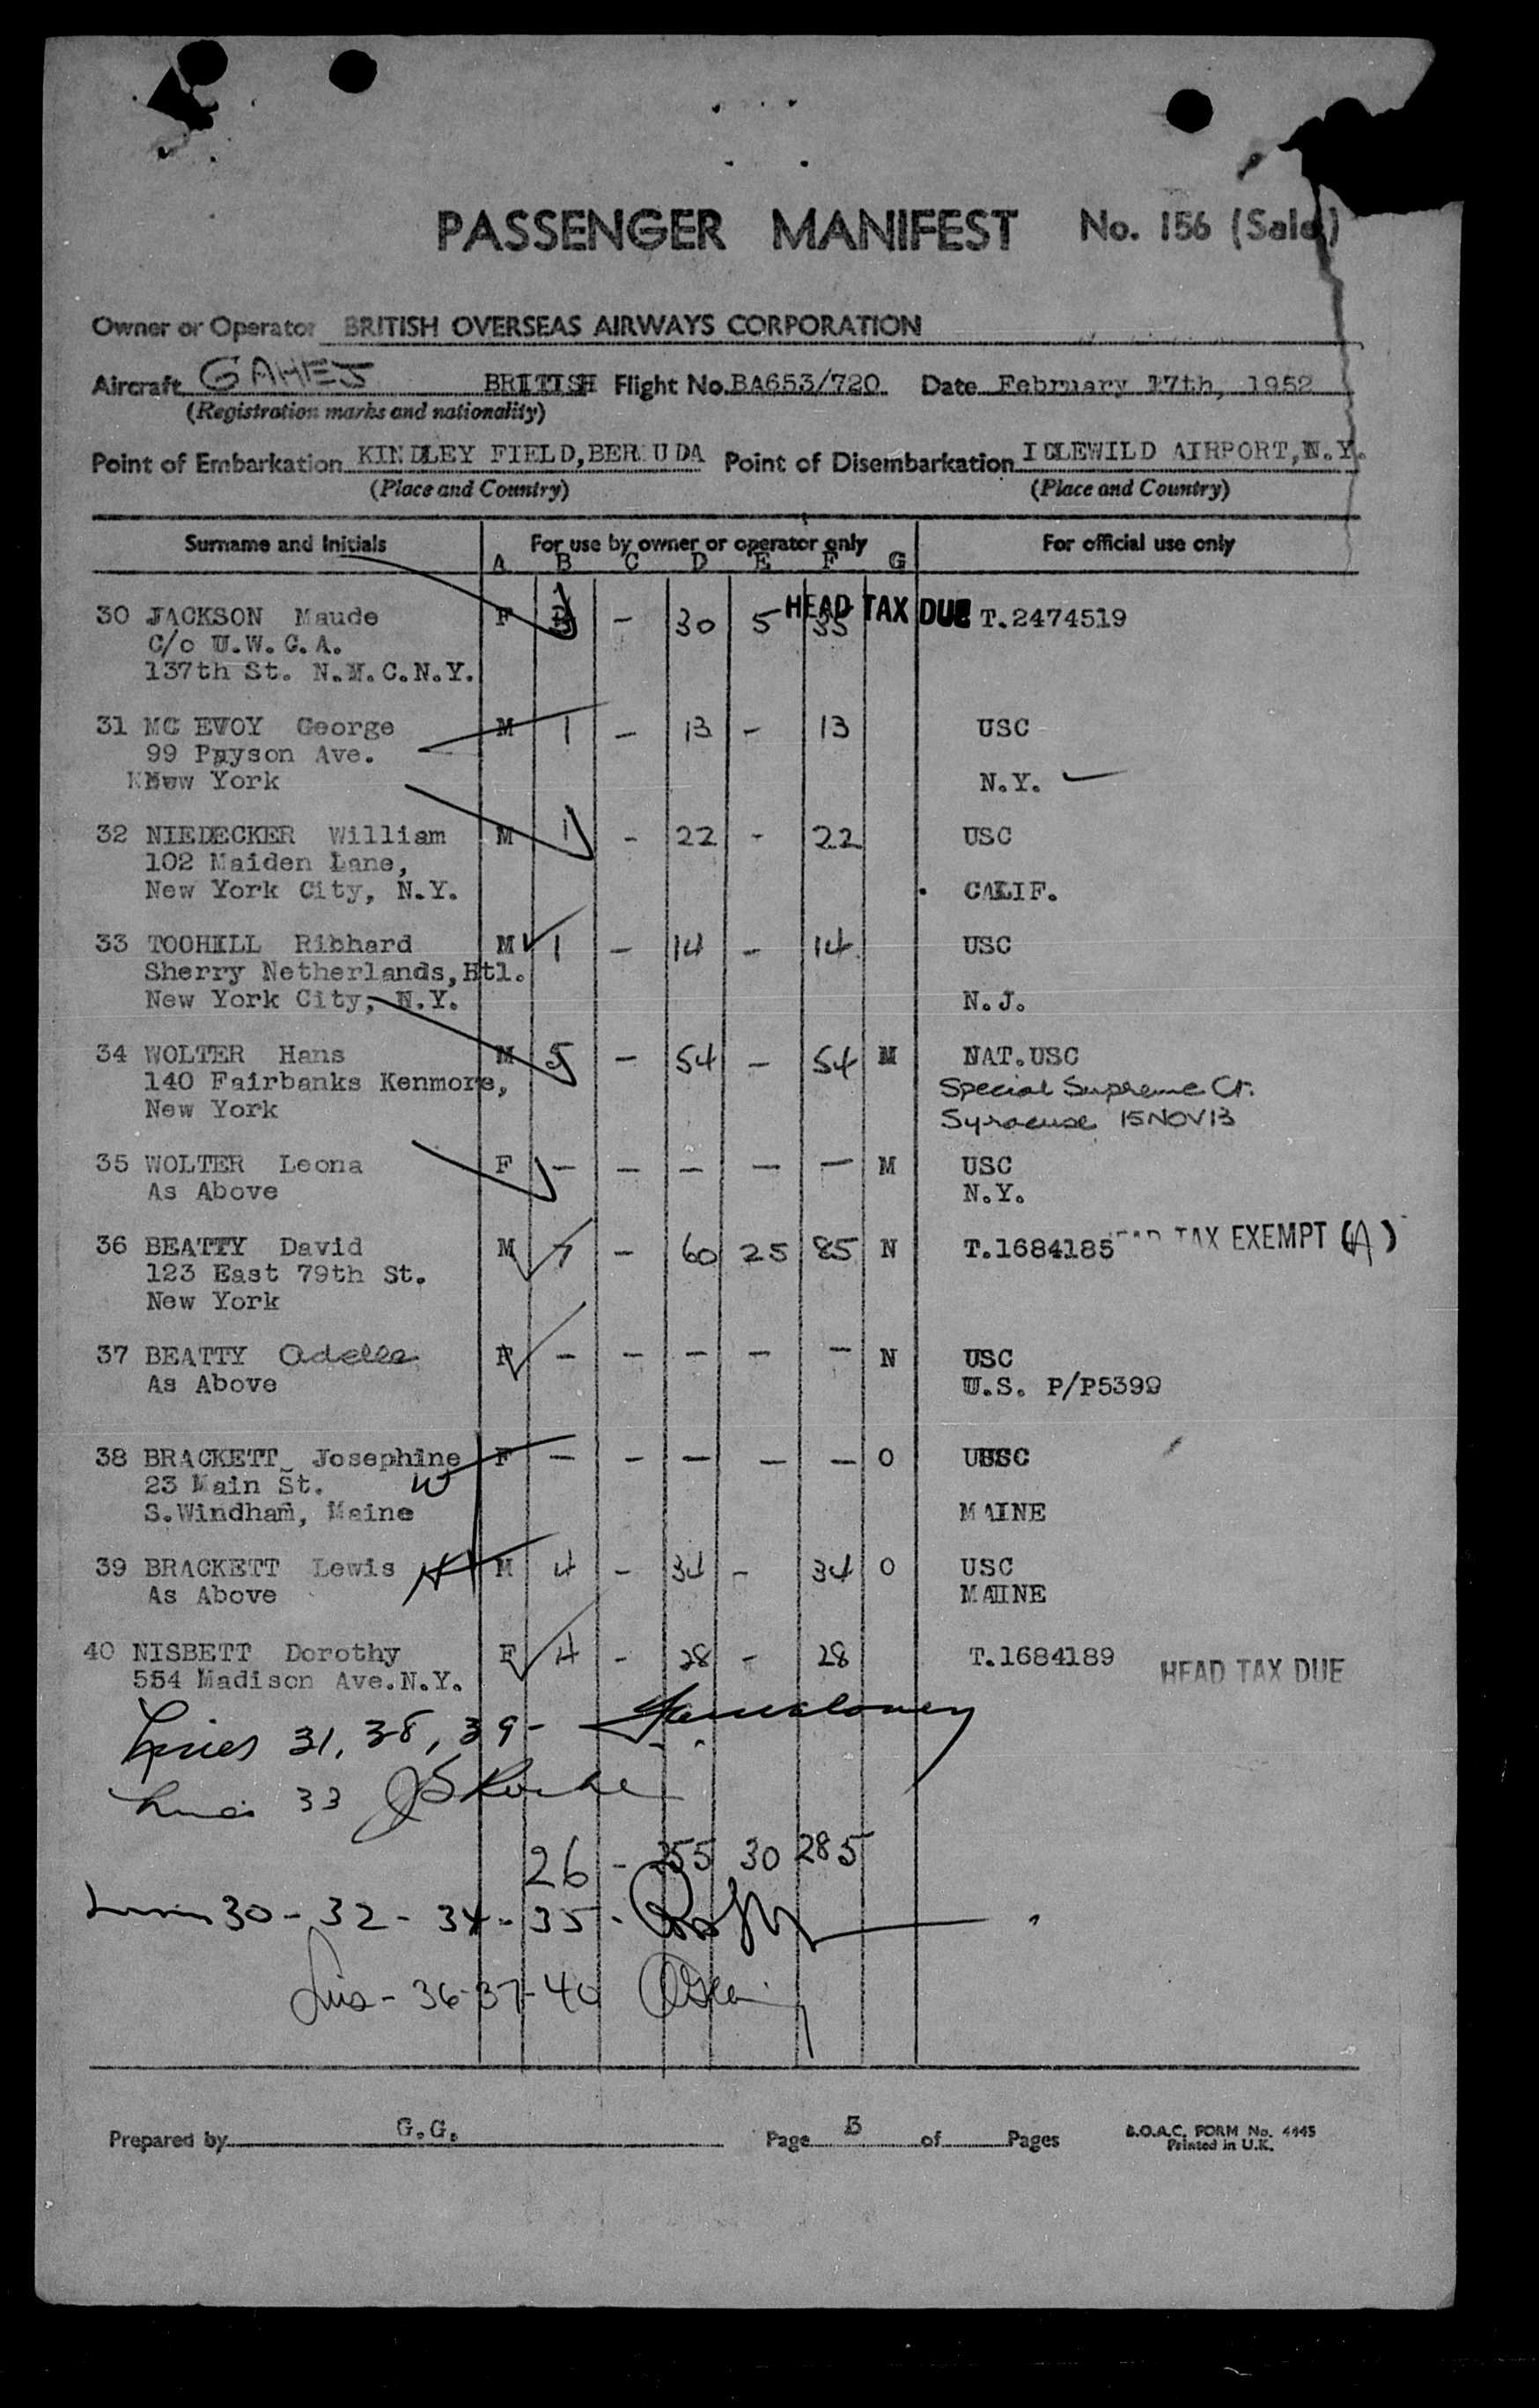 PASSENGER MANIFEST No. 156 (Sale)
Owner or Operator BRITISH OVERSEAS AIRWAYS CORPORATION
Aircraft GAHEJ BRITISH Flight No. BA653/720 Date February 17th, 1952
(Registration marks and nationality)
Point of Embarkation KINDLEY FIELD, BERMUDA Point of Disembarkation IDLEWILD AIRPORT, N.Y.
(Place and Country) (Place and Country)
Surname and Initials For use by owner or operator only For official use only
A B C D E F G
30 JACKSON Maude F 3 - 30 5 35 HEAD TAX DUE T.2474519
C/o U.W.C.A.
137th St. N.M.C.N.Y.
31 MC EVOY George M 1 - 13 - 13 USC
99 Payson Ave.
New York N.Y.
32 NIEDECKER William M 1 - 22 - 22 USC
102 Maiden Lane,
New York City, N.Y. CALIF.
33 TOOHILL Ribhard M 1 - 14 - 14 USC
Sherry Netherlands, Htl.
New York City, N.Y. N.J.
34 WOLTER Hans M 5 - 54 - 54 M NAT.USC
140 Fairbanks Kenmore, Special Supreme Ct.
New York Syracuse 15NOV13
35 WOLTER Leona F - - - - - M USC
As Above N.Y.
36 BEATTY David M 7 - 60 25 85 N T.1684185 TAX EXEMPT (A)
123 East 79th St.
New York
37 BEATTY Adelle F - - - - - N USC
As Above U.S. P/P5399
38 BRACKETT Josephine F - - - - - O USC
23 Main St. W
S.Windham, Maine MAINE
39 BRACKETT Lewis H M 4 - 34 - 34 O USC
As Above MAINE
40 NISBETT Dorothy F 4 - 28 - 28 T.1684189 HEAD TAX DUE
554 Madison Ave.N.Y.
Lines 31, 38, 39 -
Lines 33
26 - 255 30 285
Lines 30 - 32 - 34 - 35 -
Lines - 36-37-40
Prepared by G.G. Page 3 of Pages B.O.A.C. FORM No. 4445
Printed in U.K.